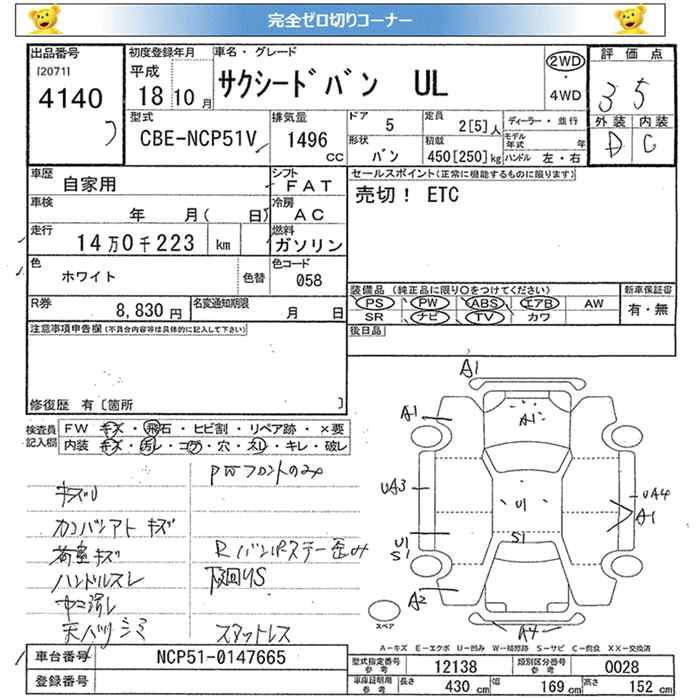 完全ゼロ切りコーナー
出品番号 初度登録年月 車名・グレード 評価点
[2071] 平成 サクシードバン UL 2WD 3 5
4140 18 10月 ・ 4WD
型式 排気量 ドア 5 定員 2[5]人 ディーラー・並行 外装 内装
CBE-NCP51V 1496 cc 形状 バン 積載 450[250]kg モデル年式 年 D C
ハンドル 左・右
車歴 自家用 シフト FAT セールスポイント(正常に機能するものに限ります)
車検 年 月( 日) 冷房 AC 売切! ETC
走行 14万0千223 km 燃料 ガソリン
色 ホワイト 色替 色コード 058
装備品 (純正品に限り○をつけてください) 新車保証書
R券 8,830円 名変通知期限 月 日 PS PW ABS エアB AW 有・無
SR ナビ TV カワ
注意事項申告欄(不具合内容等は具体的に記入して下さい) 後日品
修復歴 有〔箇所 〕
検査員記入欄 FW キズ・飛石・ヒビ割・リペア跡・×要
内装 キズ・汚レ・コゲ・穴・スレ・キレ・破レ
PWフロントのみ
キズU
カンバンアト キズ
荷室キズ Rバンパステー歪み
ハンドルスレ 下廻りS
スタッドレス
A1
A1 A1
UA3 U1 UA4
A1
U1 S1
S1
A2
A4
スペア
A-キズ E-エクボ U-凹み W-補修跡 S-サビ C-腐食 XX-交換済
車台番号 NCP51-0147665 型式指定番号 参考 12138 類別区分番号 参考 0028
登録番号 車庫証明用 参考 長さ 430 cm 幅 169 cm 高さ 152 cm